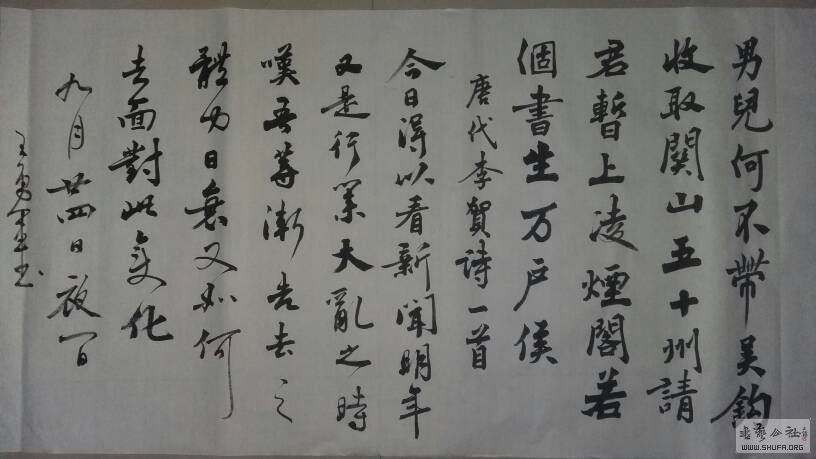 男兒何不帶吳鈎
收取關山五十州請
君暫上凌煙閣若
個書生万戶侯
唐代李賀詩一首
今日得以看新聞明年
又是行業大亂之時
嘆吾等漸老去之
體力日衰又如何
去面對此變化
九月廿四日夜
王
书艺公社
WWW.SHUFA.ORG